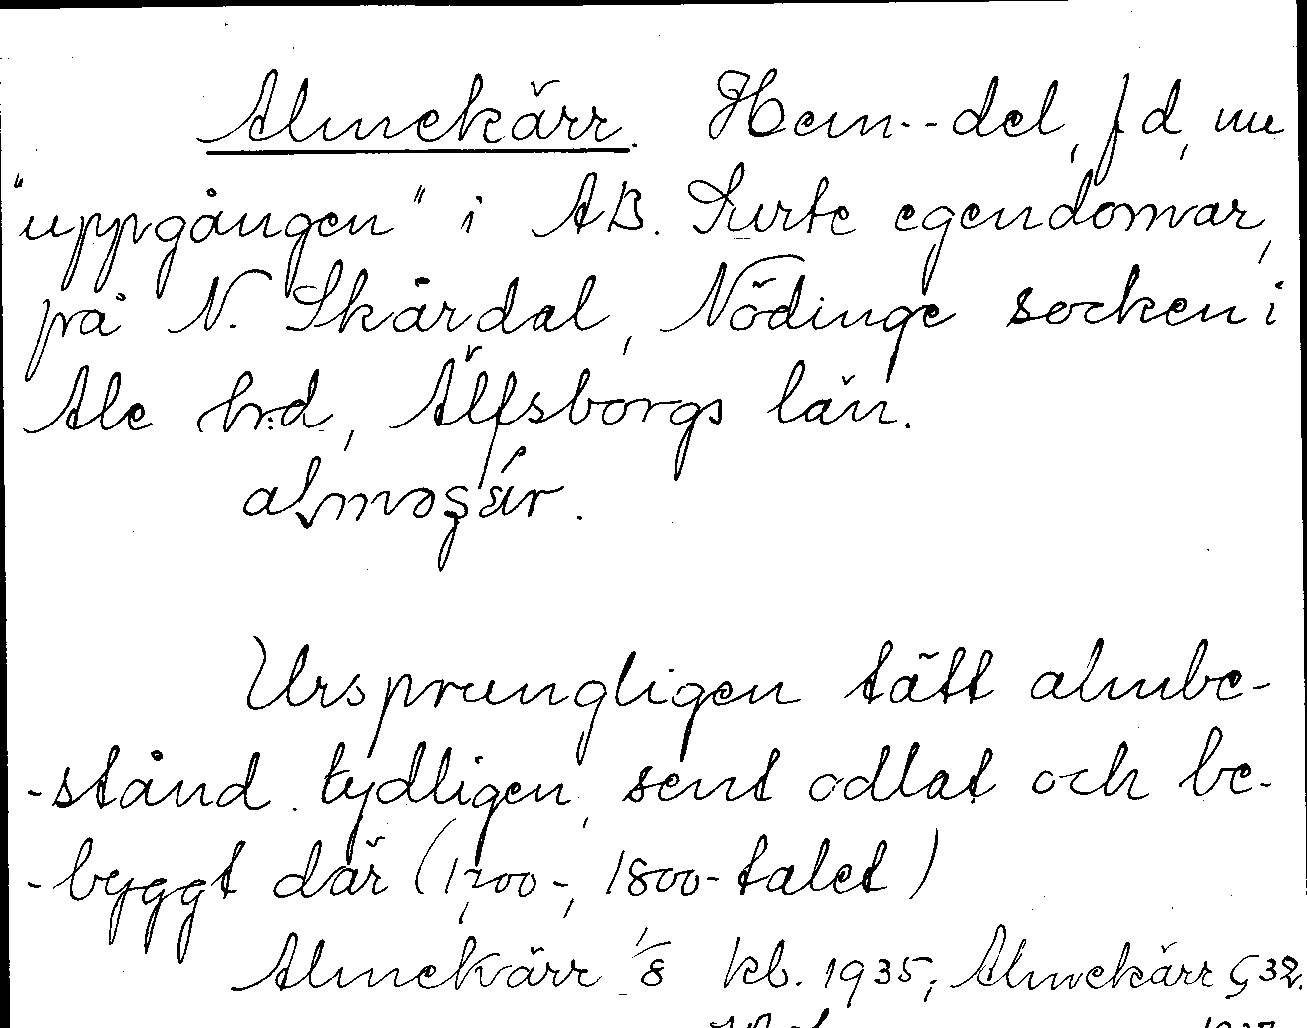 Almekärr. Hem.-del, f d, nu
"uppgången" i AB. Surte egendomar,
på N. Skårdal, Nödinge socken i
Ale hrd, Älfsborgs län.
Ursprungligen tätt almbe-
-stånd tydligen, sent odlat och be-
-byggt där (1700-, 1800-talet)
Almekärr 1/8 kb. 1935; Almekärr